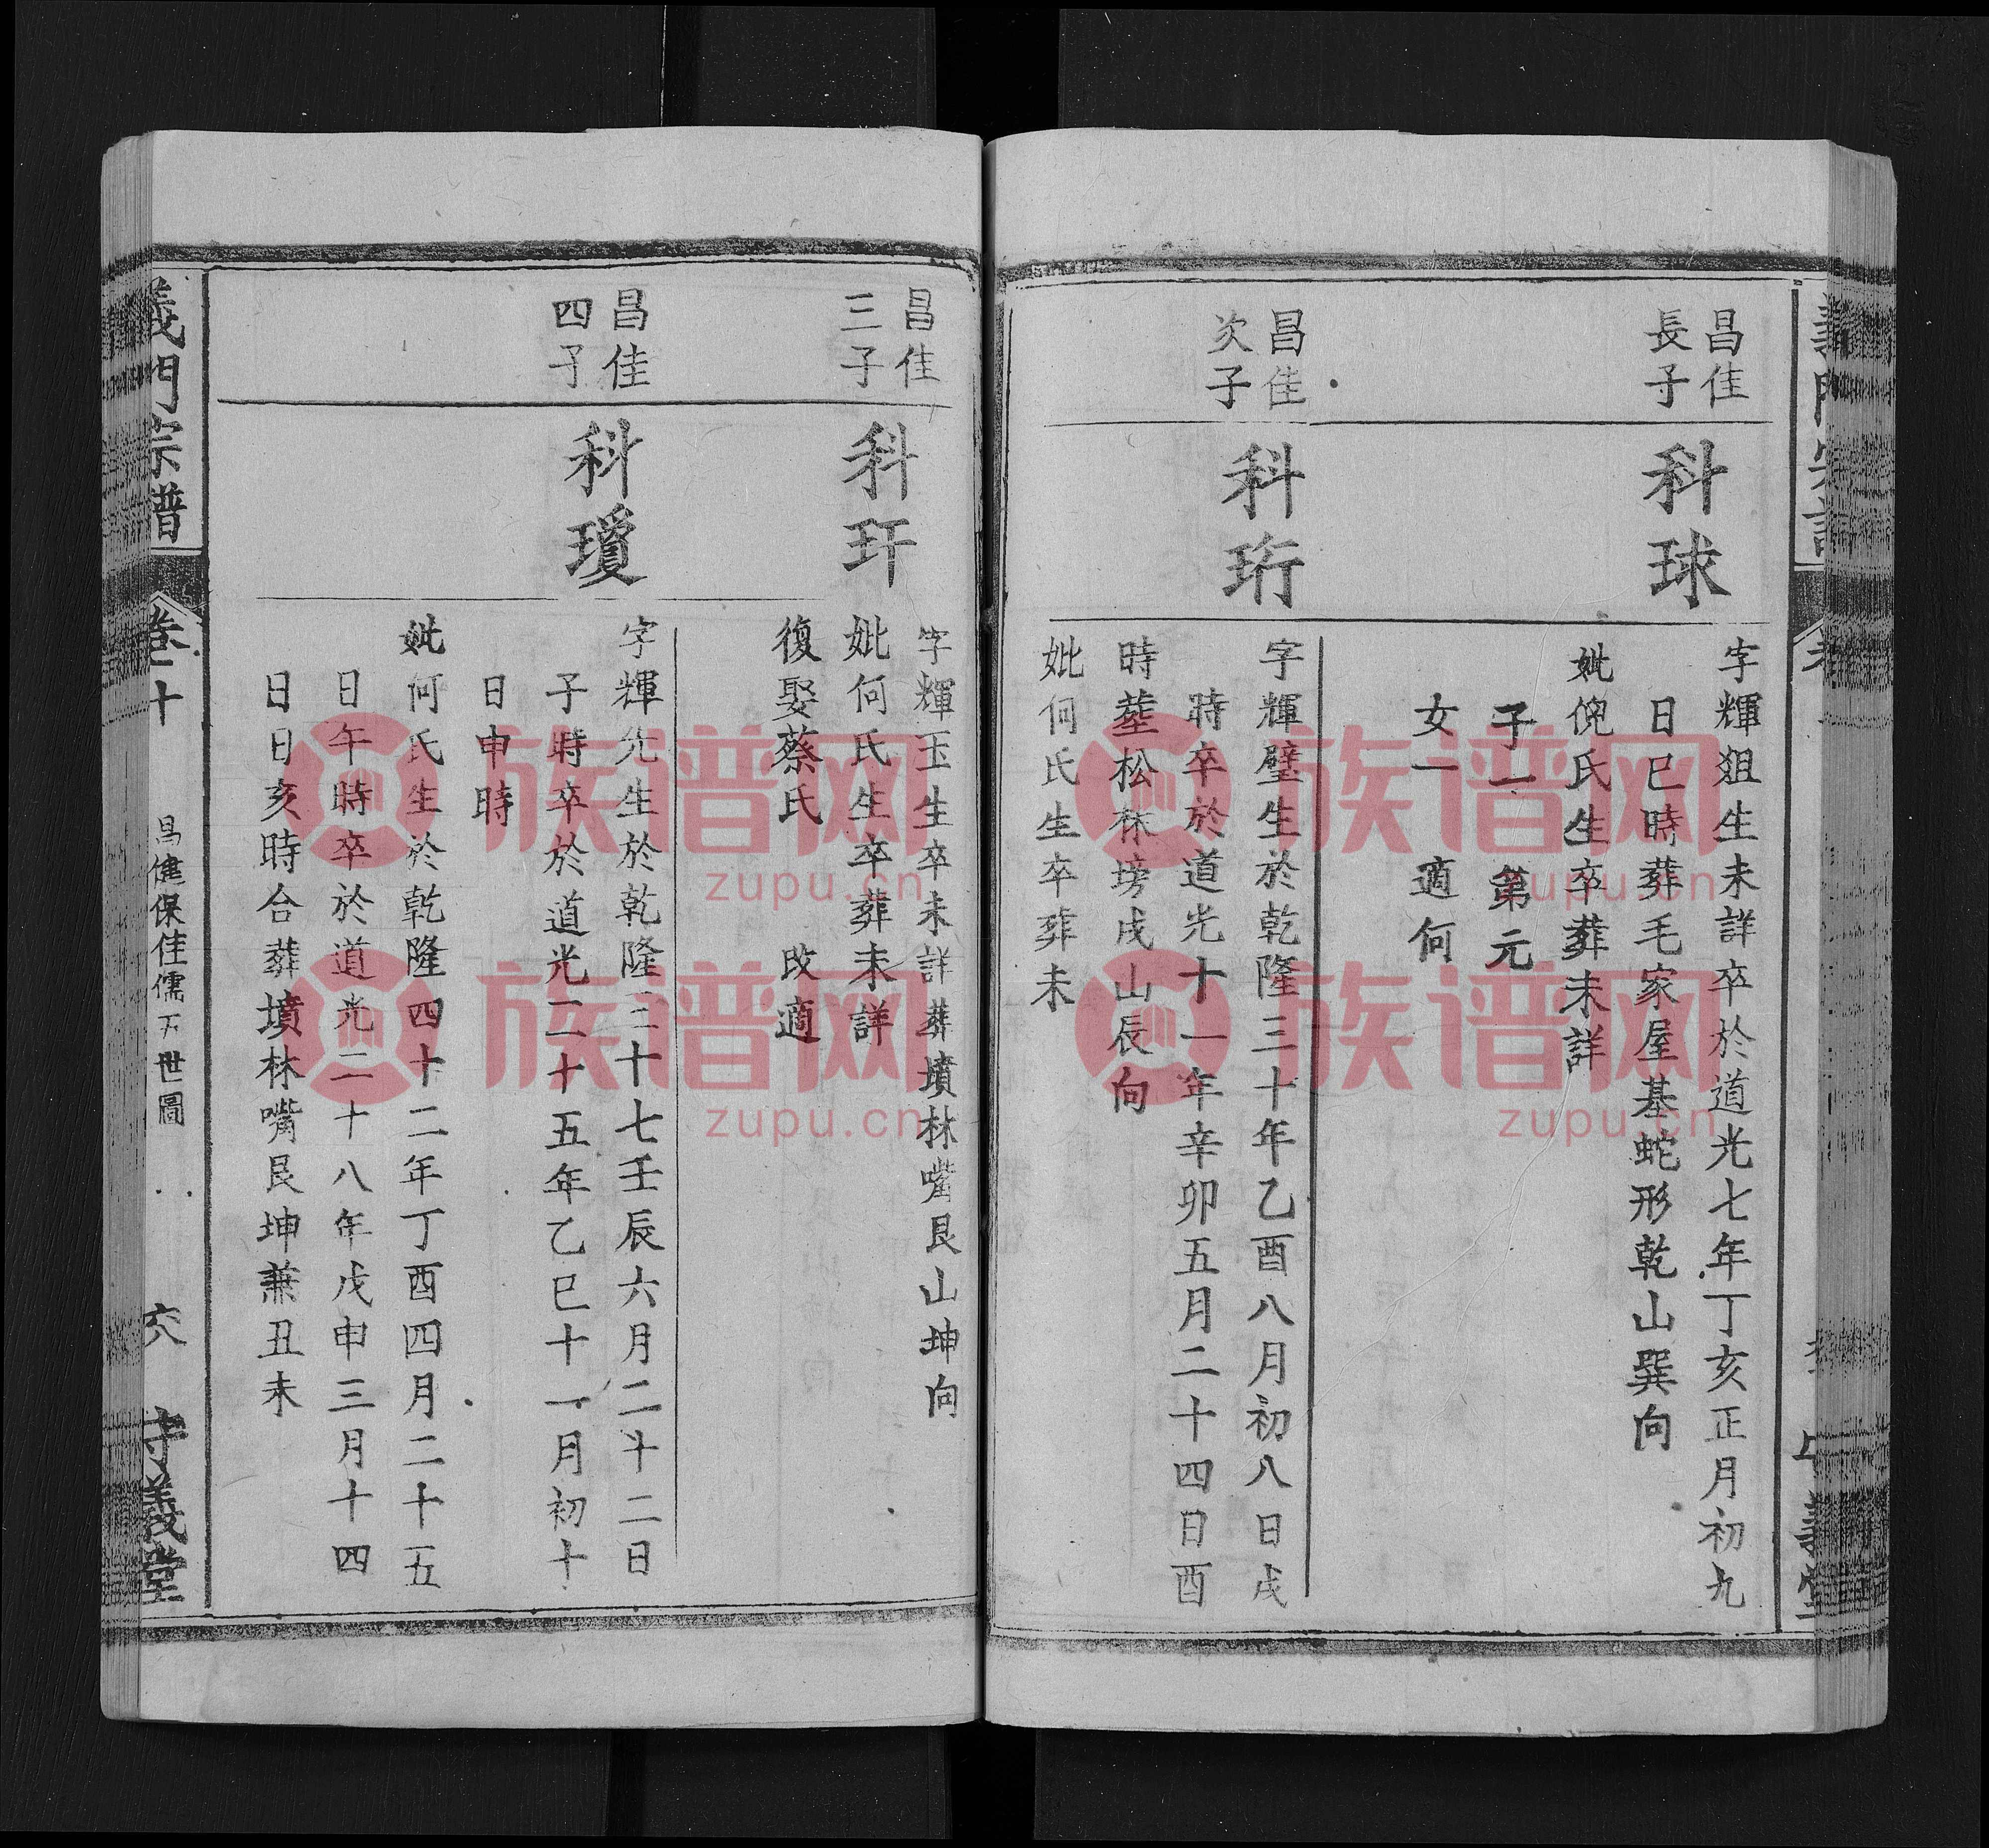 昌佳
長子
科球
字輝㺵生未詳卒於道光七年丁亥正月初九
日巳時葬毛家屋基蛇形乾山巽向
妣倪氏生卒葬未詳
子一 第元
女一 適何
昌佳
次子
科珩
字輝璧生於乾隆三十年乙酉八月初八日戌
時卒於道光十一年辛卯五月二十四日酉
時塟松林塝戌山辰向
妣何氏生卒葬未
昌佳
三子
科玕
字輝玉生卒未詳葬墳林嘴艮山坤向
妣何氏生卒葬未詳
復娶蔡氏 改適
昌佳
四子
科瓊
字輝先生於乾隆三十七壬辰六月二十二日
子時卒於道光二十五年乙巳十一月初十
日申時
妣何氏生於乾隆四十二年丁酉四月二十五
日午時卒於道光二十八年戊申三月十四
日日亥時合葬墳林嘴艮坤兼丑未
義門宗譜
卷二十
昌健保佳儒下世圖
守義堂
族谱网
zupu.cn
族谱网
zupu.cn
族谱网
zupu.cn
族谱网
zupu.cn